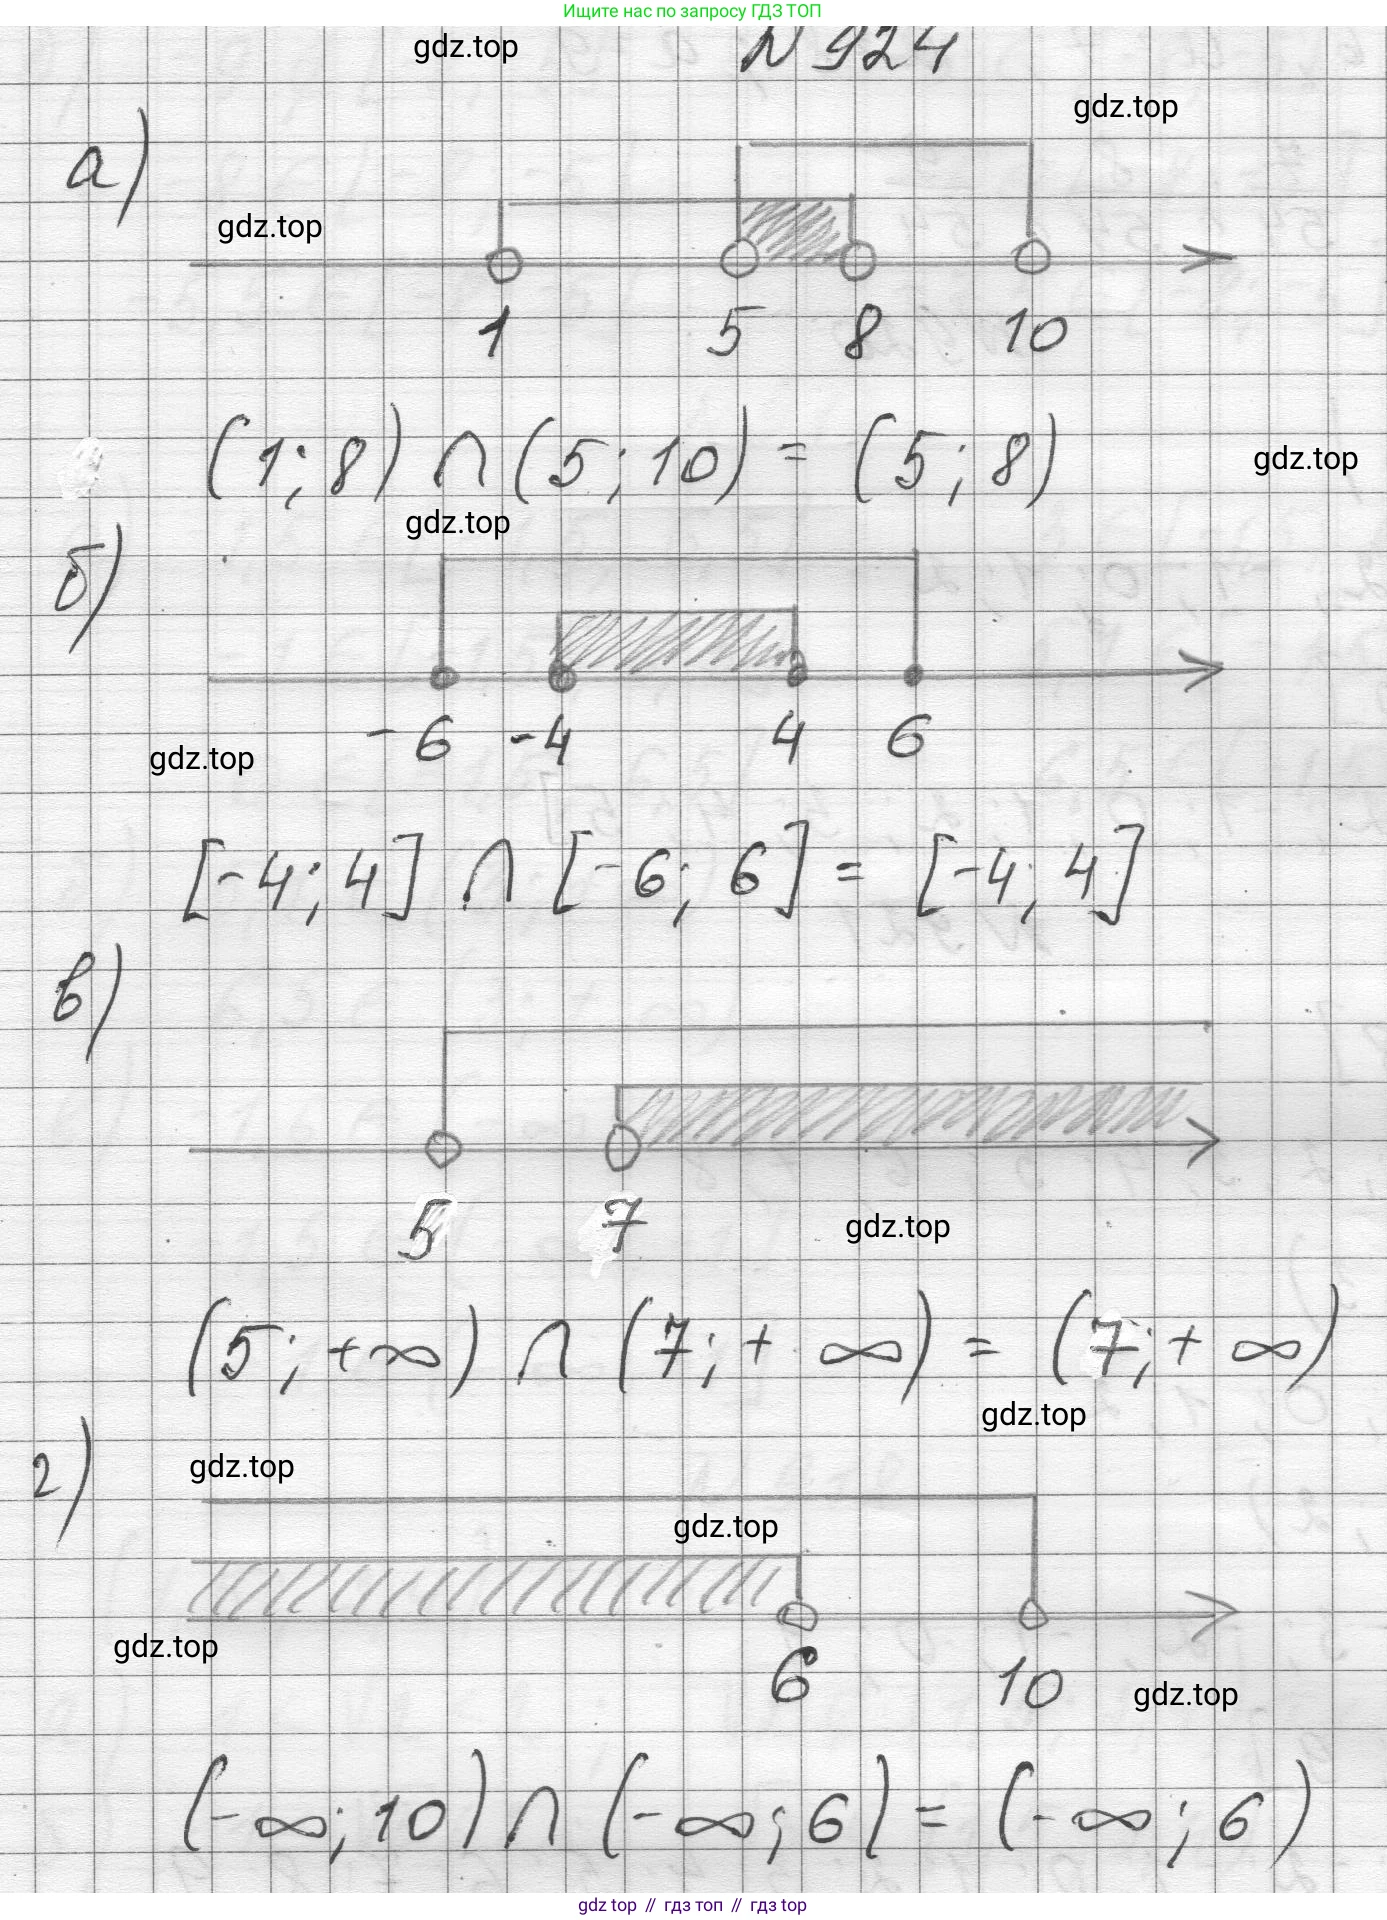 Ищите нас по запросу ГДЗ ТОП
N 924
gdz.top
gdz.top
а)
gdz.top
1 5 8 10
(1; 8) ∩ (5; 10) = (5; 8)
gdz.top
gdz.top
б)
-6 -4 4 6
gdz.top
[-4; 4] ∩ [-6; 6] = [-4; 4]
в)
5 7
gdz.top
(5; +∞) ∩ (7; + ∞) = (7; + ∞)
gdz.top
г)
gdz.top
gdz.top
gdz.top
6 10
gdz.top
(-∞; 10) ∩ (-∞; 6) = (-∞; 6)
gdz top // гдз топ // гдз top